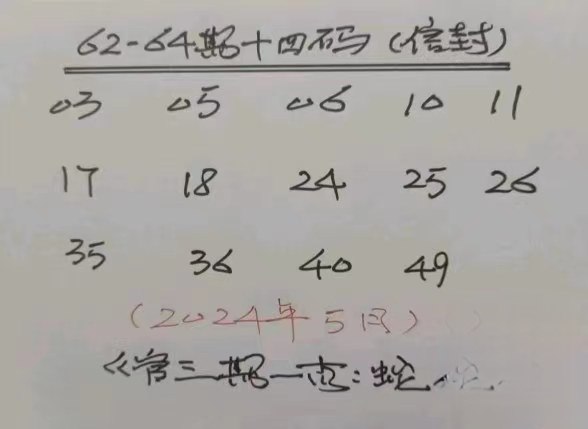 62-64期十四码（信封）
03 05 06 10 11
17 18 24 25 26
35 36 40 49
（2024年5月）
《管三期一肖：蛇